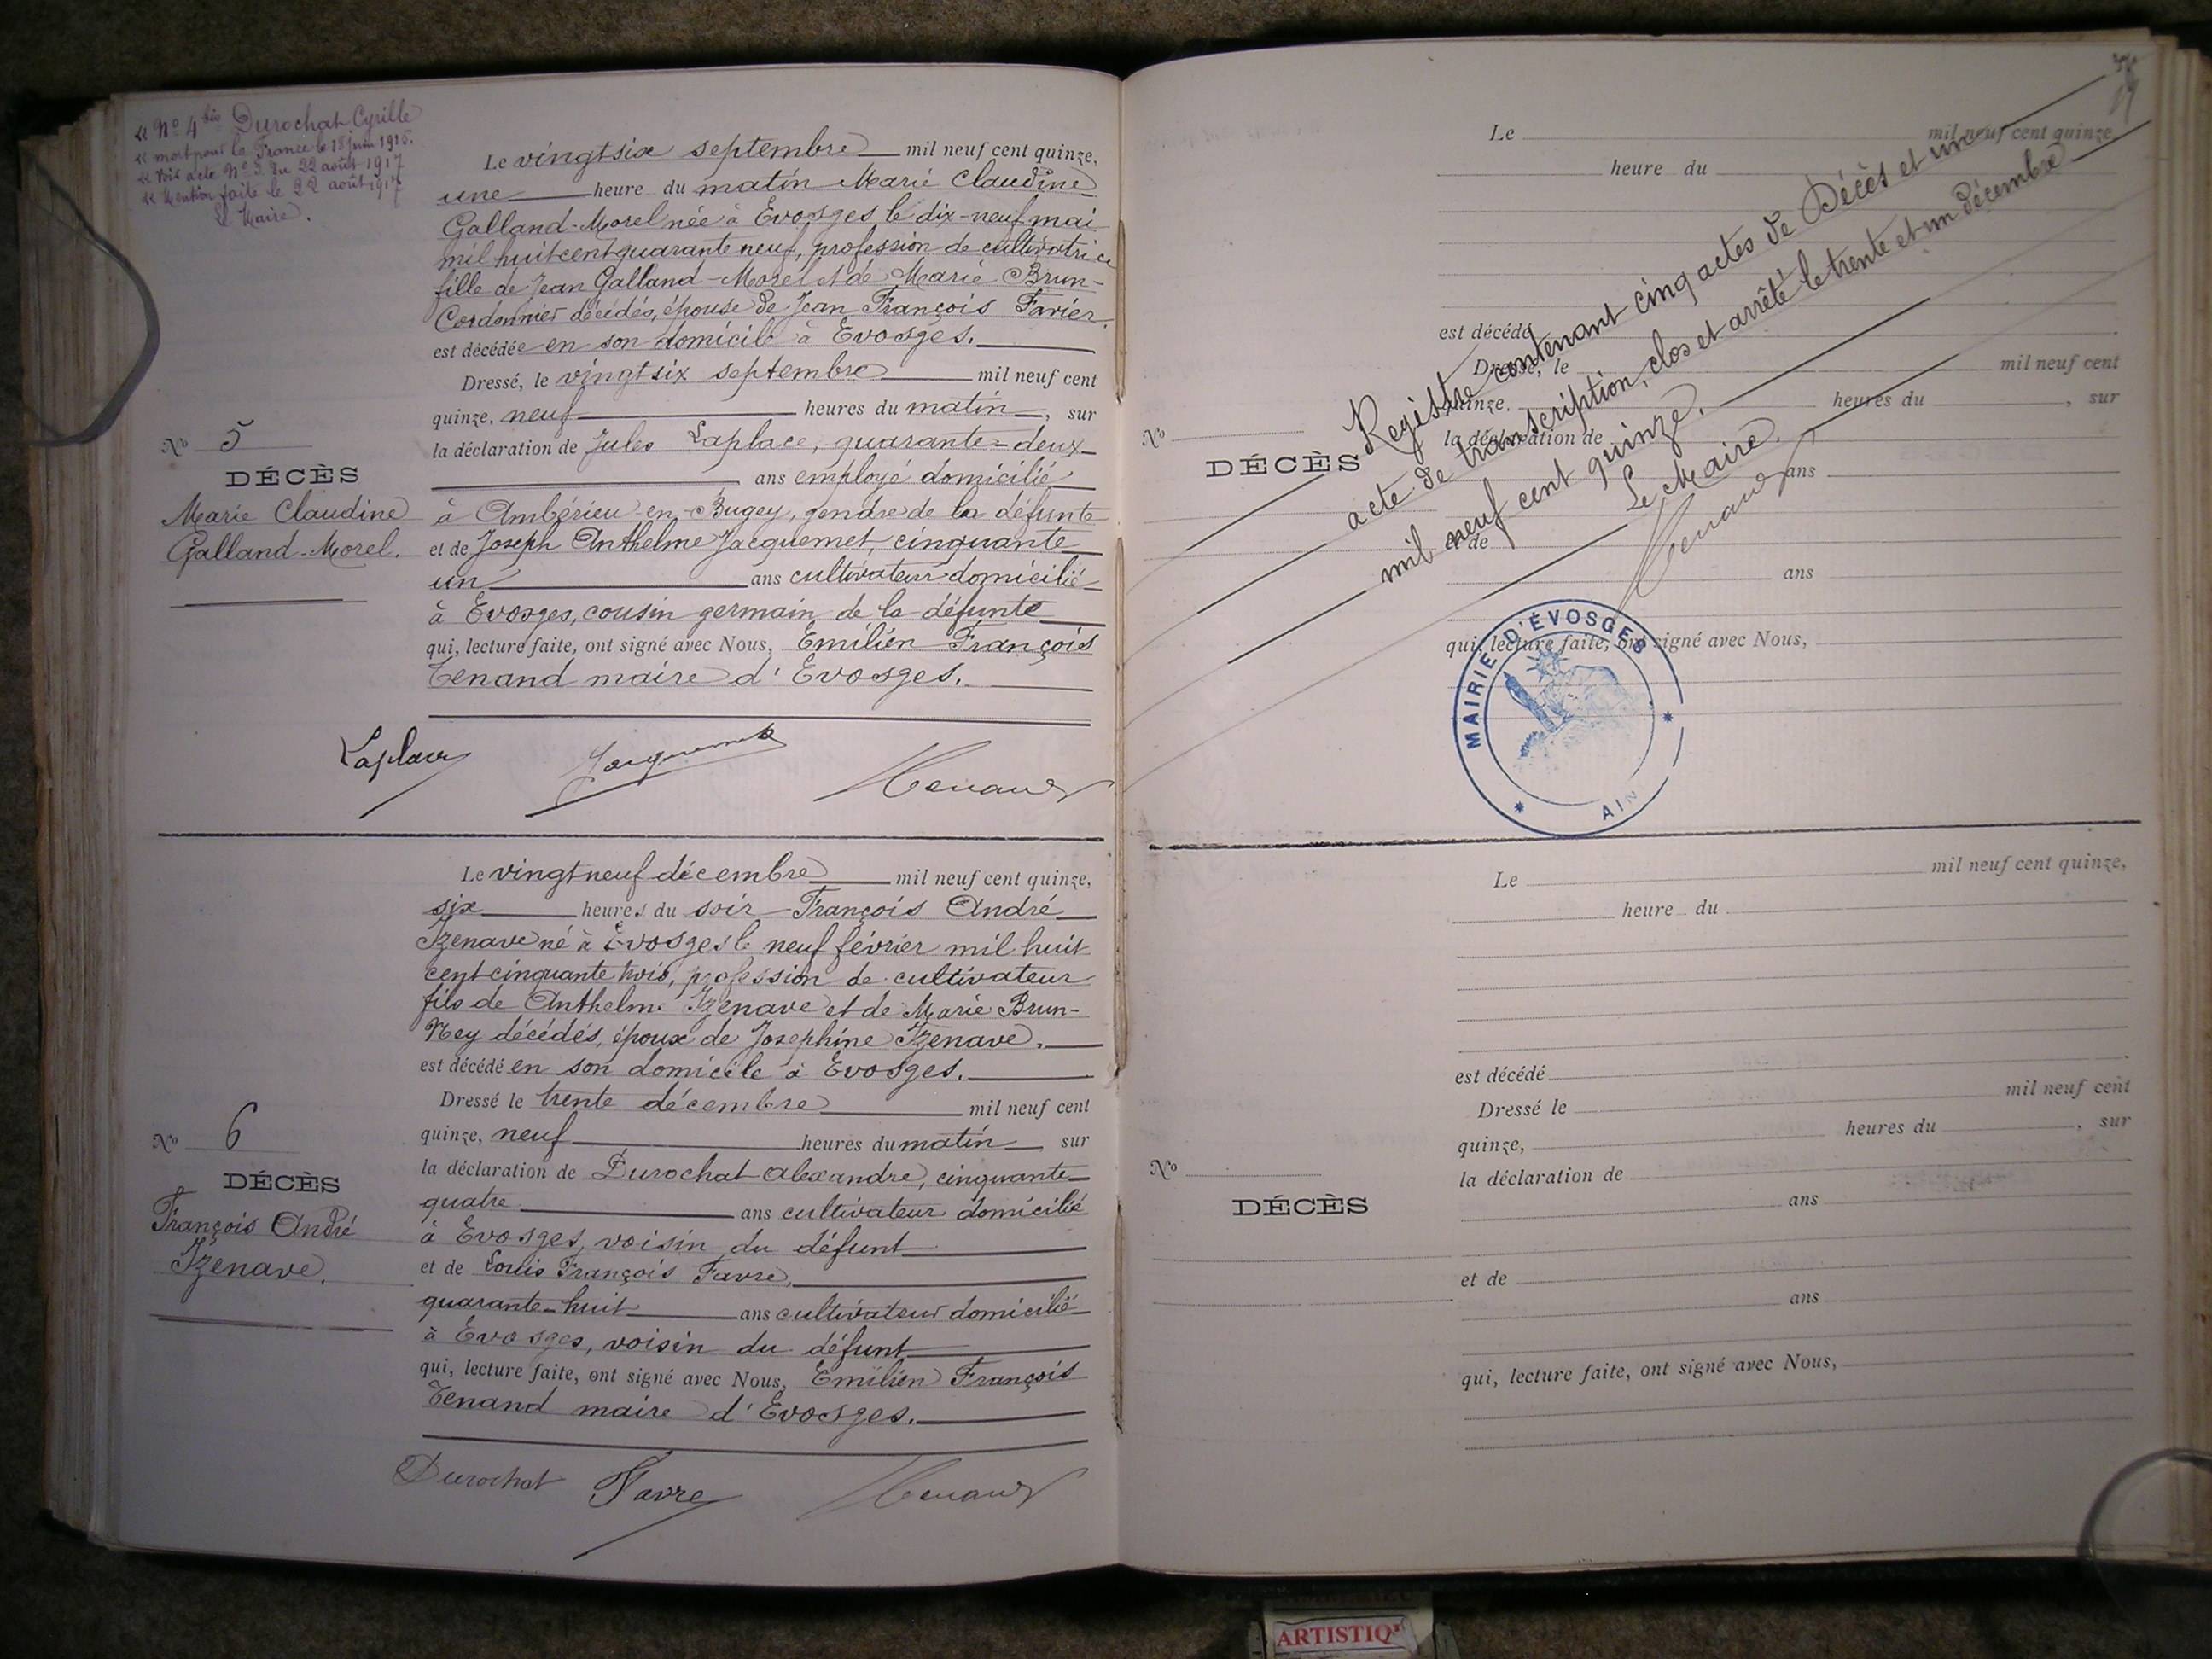 « N° 4 bis Durochat Cyrille
« mort pour la France le 18 juin 1915.
« Voir acte N° 3 du 22 août 1917
« Mention faite le 22 août 1917
Le Maire.
Le vingt six septembre mil neuf cent quinze,
une heure du matin Marie Claudine
Galland-Morel née à Evosges le dix-neuf mai
mil huit cent quarante neuf, profession de cultivatrice
fille de Jean Galland-Morel et de Marie Brun-
Cordonnier décédés, épouse de Jean François Favier.
est décédée en son domicile à Evosges.
Dressé, le vingt six septembre mil neuf cent
quinze, neuf heures du matin, sur
la déclaration de Jules Laplace, quarante-deux
ans employé domicilié
à Ambérieu-en-Bugey, gendre de la défunte
et de Joseph Anthelme Jacquemet, cinquante
un ans cultivateur domicilié
à Evosges, cousin germain de la défunte
qui, lecture faite, ont signé avec Nous, Emilien François
Tenand maire d'Evosges.
N° 5
DÉCÈS
Marie Claudine
Galland-Morel.
Laplace Jacquemet Tenand
Le vingt neuf décembre mil neuf cent quinze,
six heures du soir François André
Izenave né à Evosges le neuf février mil huit
cent cinquante trois, profession de cultivateur
fils de Anthelme Izenave et de Marie Brun-
Ney décédés, époux de Josephine Izenave.
est décédé en son domicile à Evosges.
Dressé le trente décembre mil neuf cent
quinze, neuf heures du matin sur
la déclaration de Durochat Alexandre, cinquante
quatre ans cultivateur domicilié
à Evosges, voisin du défunt
et de Louis François Favre,
quarante-huit ans cultivateur domicilié
à Evosges, voisin du défunt
qui, lecture faite, ont signé avec Nous, Emilien François
Tenand maire d'Evosges.
N° 6
DÉCÈS
François André
Izenave.
Durochat Favre Tenand
Le mil neuf cent quinze
heure du
est décédé
Dressé, le mil neuf cent
quinze, heures du , sur
la déclaration de
ans
et de
ans
qui, lecture faite, ont signé avec Nous,
N°
DÉCÈS
Registre contenant cinq actes de Décès et un
acte de transcription, clos et arrêté le trente et un décembre
mil neuf cent quinze.
Le Maire.
Tenand
MAIRIE D'ÉVOSGES
AIN
Le mil neuf cent quinze,
heure du
est décédé
Dressé le mil neuf cent
quinze, heures du , sur
la déclaration de
ans
et de
ans
qui, lecture faite, ont signé avec Nous,
N°
DÉCÈS
ARTISTIQ